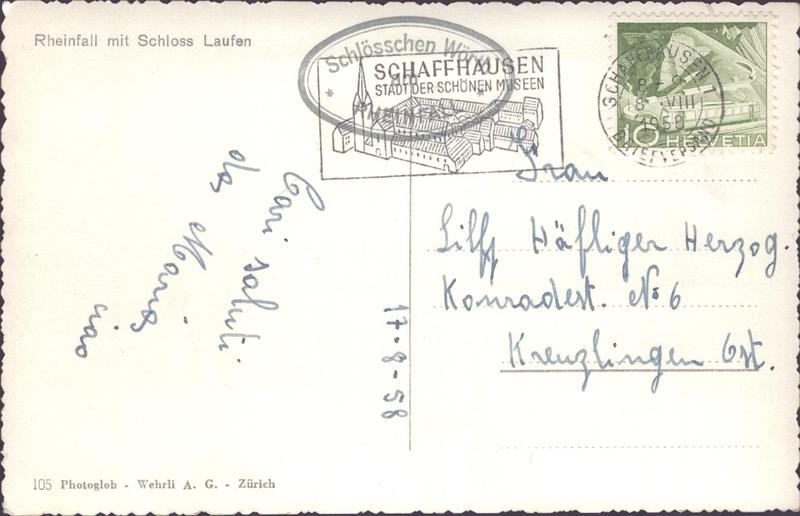 Rheinfall mit Schloss Laufen
Schlösschen Wörth
am
RHEINFALL
SCHAFFHAUSEN
STADT DER SCHÖNEN MUSEEN
SCHAFFHAUSEN 1
VIII
1958
BRIEFVERSAND
10 HELVETIA
Cari saluti
da Mario
ciao
17-8-58
Frau
Lilly Häfliger Herzog.
Konradest. No 6
Kreuzlingen Ost.
105 Photoglob - Wehrli A. G. - Zürich